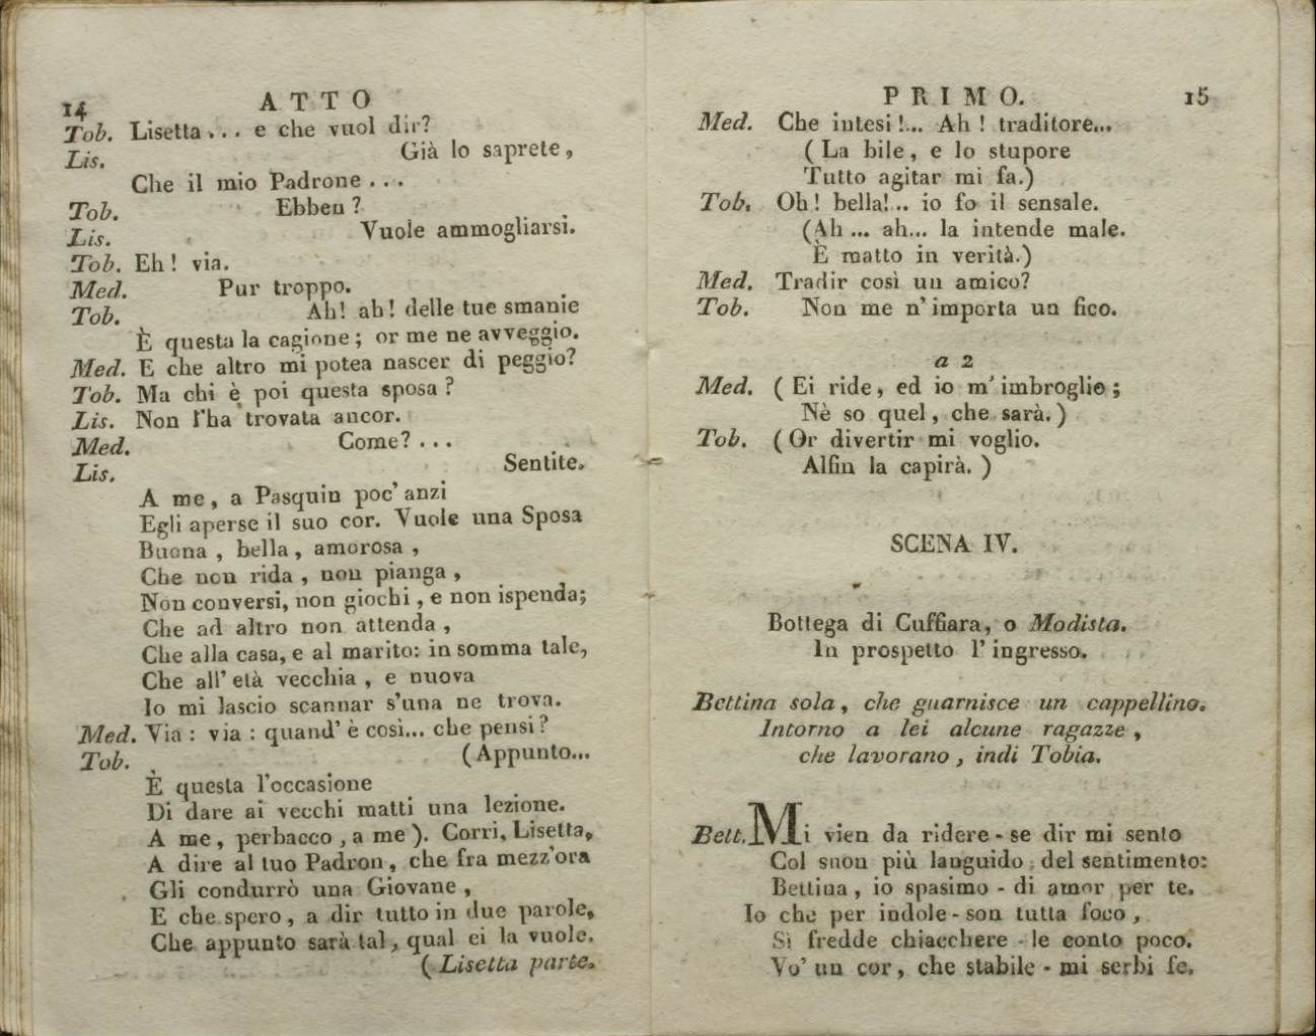 14 ATTO
Tob. Lisetta... e che vuol dir?
Lis. Già lo saprete,
Che il mio Padrone...
Tob. Ebben?
Lis. Vuole ammogliarsi.
Tob. Eh! via.
Med. Pur troppo.
Tob. Ah! ah! delle tue smanie
È questa la cagione; or me ne avveggio.
Med. E che altro mi potea nascer di peggio?
Tob. Ma chi è poi questa sposa?
Lis. Non l'ha trovata ancor.
Med. Come?...
Lis. Sentite.
A me, a Pasquin poc' anzi
Egli aperse il suo cor. Vuole una Sposa
Buona, bella, amorosa,
Che non rida, non pianga,
Non conversi, non giochi, e non ispenda;
Che ad altro non attenda,
Che alla casa, e al marito: in somma tale,
Che all' età vecchia, e nuova
Io mi lascio scannar s'una ne trova.
Med. Via: via: quand' è così... che pensi?
Tob. (Appunto...
È questa l'occasione
Di dare ai vecchi matti una lezione.
A me, perbacco, a me). Corri, Lisetta,
A dire al tuo Padron, che fra mezz'ora
Gli condurrò una Giovane,
E che spero, a dir tutto in due parole,
Che appunto sarà tal, qual ei la vuole.
(Lisetta parte.
PRIMO. 15
Med. Che intesi!... Ah! traditore...
(La bile, e lo stupore
Tutto agitar mi fa.)
Tob. Oh! bella!.. io fo il sensale.
(Ah... ah... la intende male.
È matto in verità.)
Med. Tradir così un amico?
Tob. Non me n' importa un fico.
a 2
Med. (Ei ride, ed io m' imbroglio;
Nè so quel, che sarà.)
Tob. (Or divertir mi voglio.
Alfin la capirà.)
SCENA IV.
Bottega di Cuffiara, o Modista.
In prospetto l' ingresso.
Bettina sola, che guarnisce un cappellino.
Intorno a lei alcune ragazze,
che lavorano, indi Tobia.
Bett. Mi vien da ridere - se dir mi sento
Col suon più languido del sentimento:
Bettina, io spasimo - di amor per te.
Io che per indole - son tutta foco,
Sì fredde chiacchere - le conto poco.
Vo' un cor, che stabile - mi serbi fe.